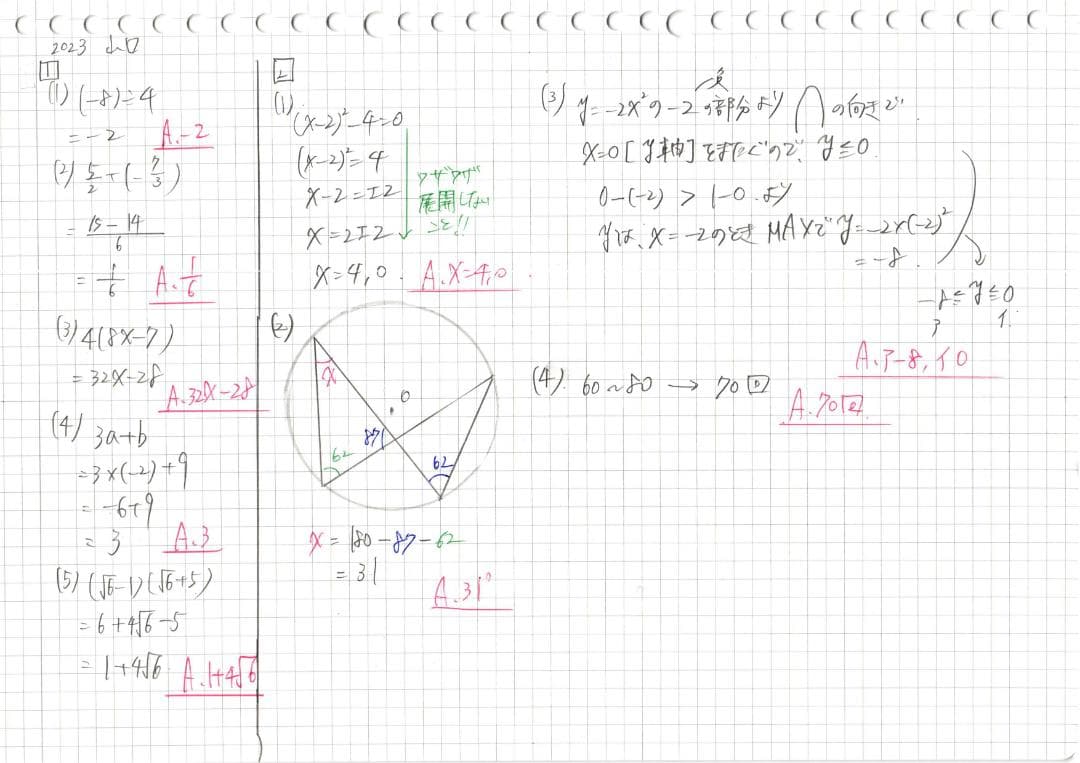 2023 山口
1
(1) (-8)÷4
= -2 A.-2
(2) 5/2 + (-7/3)
= 15-14/6
= 1/6 A.1/6
(3) 4(8x-7)
= 32x-28
A.32x-28
(4) 3a+b
=3×(-2)+9
= -6+9
= 3 A.3
(5) (√6-1)(√6+5)
= 6+4√6-5
= 1+4√6 A.1+4√6
2
(1) (x-2)²-4=0
(x-2)²=4
x-2=±2
x=2±2
x=4,0. A.x=4,0
ワザワザ
展開しない
こと!!
(2)
x
O
87
62
62
x = 180-87-62
= 31
A.31°
(3) y=-2x²の-2の部分より ⋂の向きで
負
x=0[y軸]をまたぐので、y≦0
0-(-2) > 1-0 より
yは、x=-2のとき MAXで y=-2×(-2)²
= -8
-8≦y≦0
ア イ
A.ア-8,イ0
(4). 60~80 → 70回
A.70回